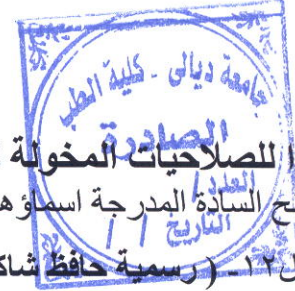 جامعة ديالى - كلية الطب
الصادرة
العدد /
التاريخ / /
للصلاحيات المخولة
السادة المدرجة اسماؤهم
١٢- (رسمية حافظ شاكر